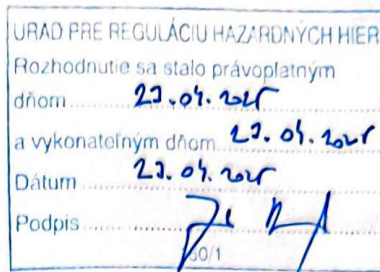 URAD PRE REGULÁCIU HAZARDNÝCH HIER
Rozhodnutie sa stalo právoplatným
dňom 23.04.2025
a vykonateľným dňom 23.04.2025
Dátum 23.04.2025
Podpis